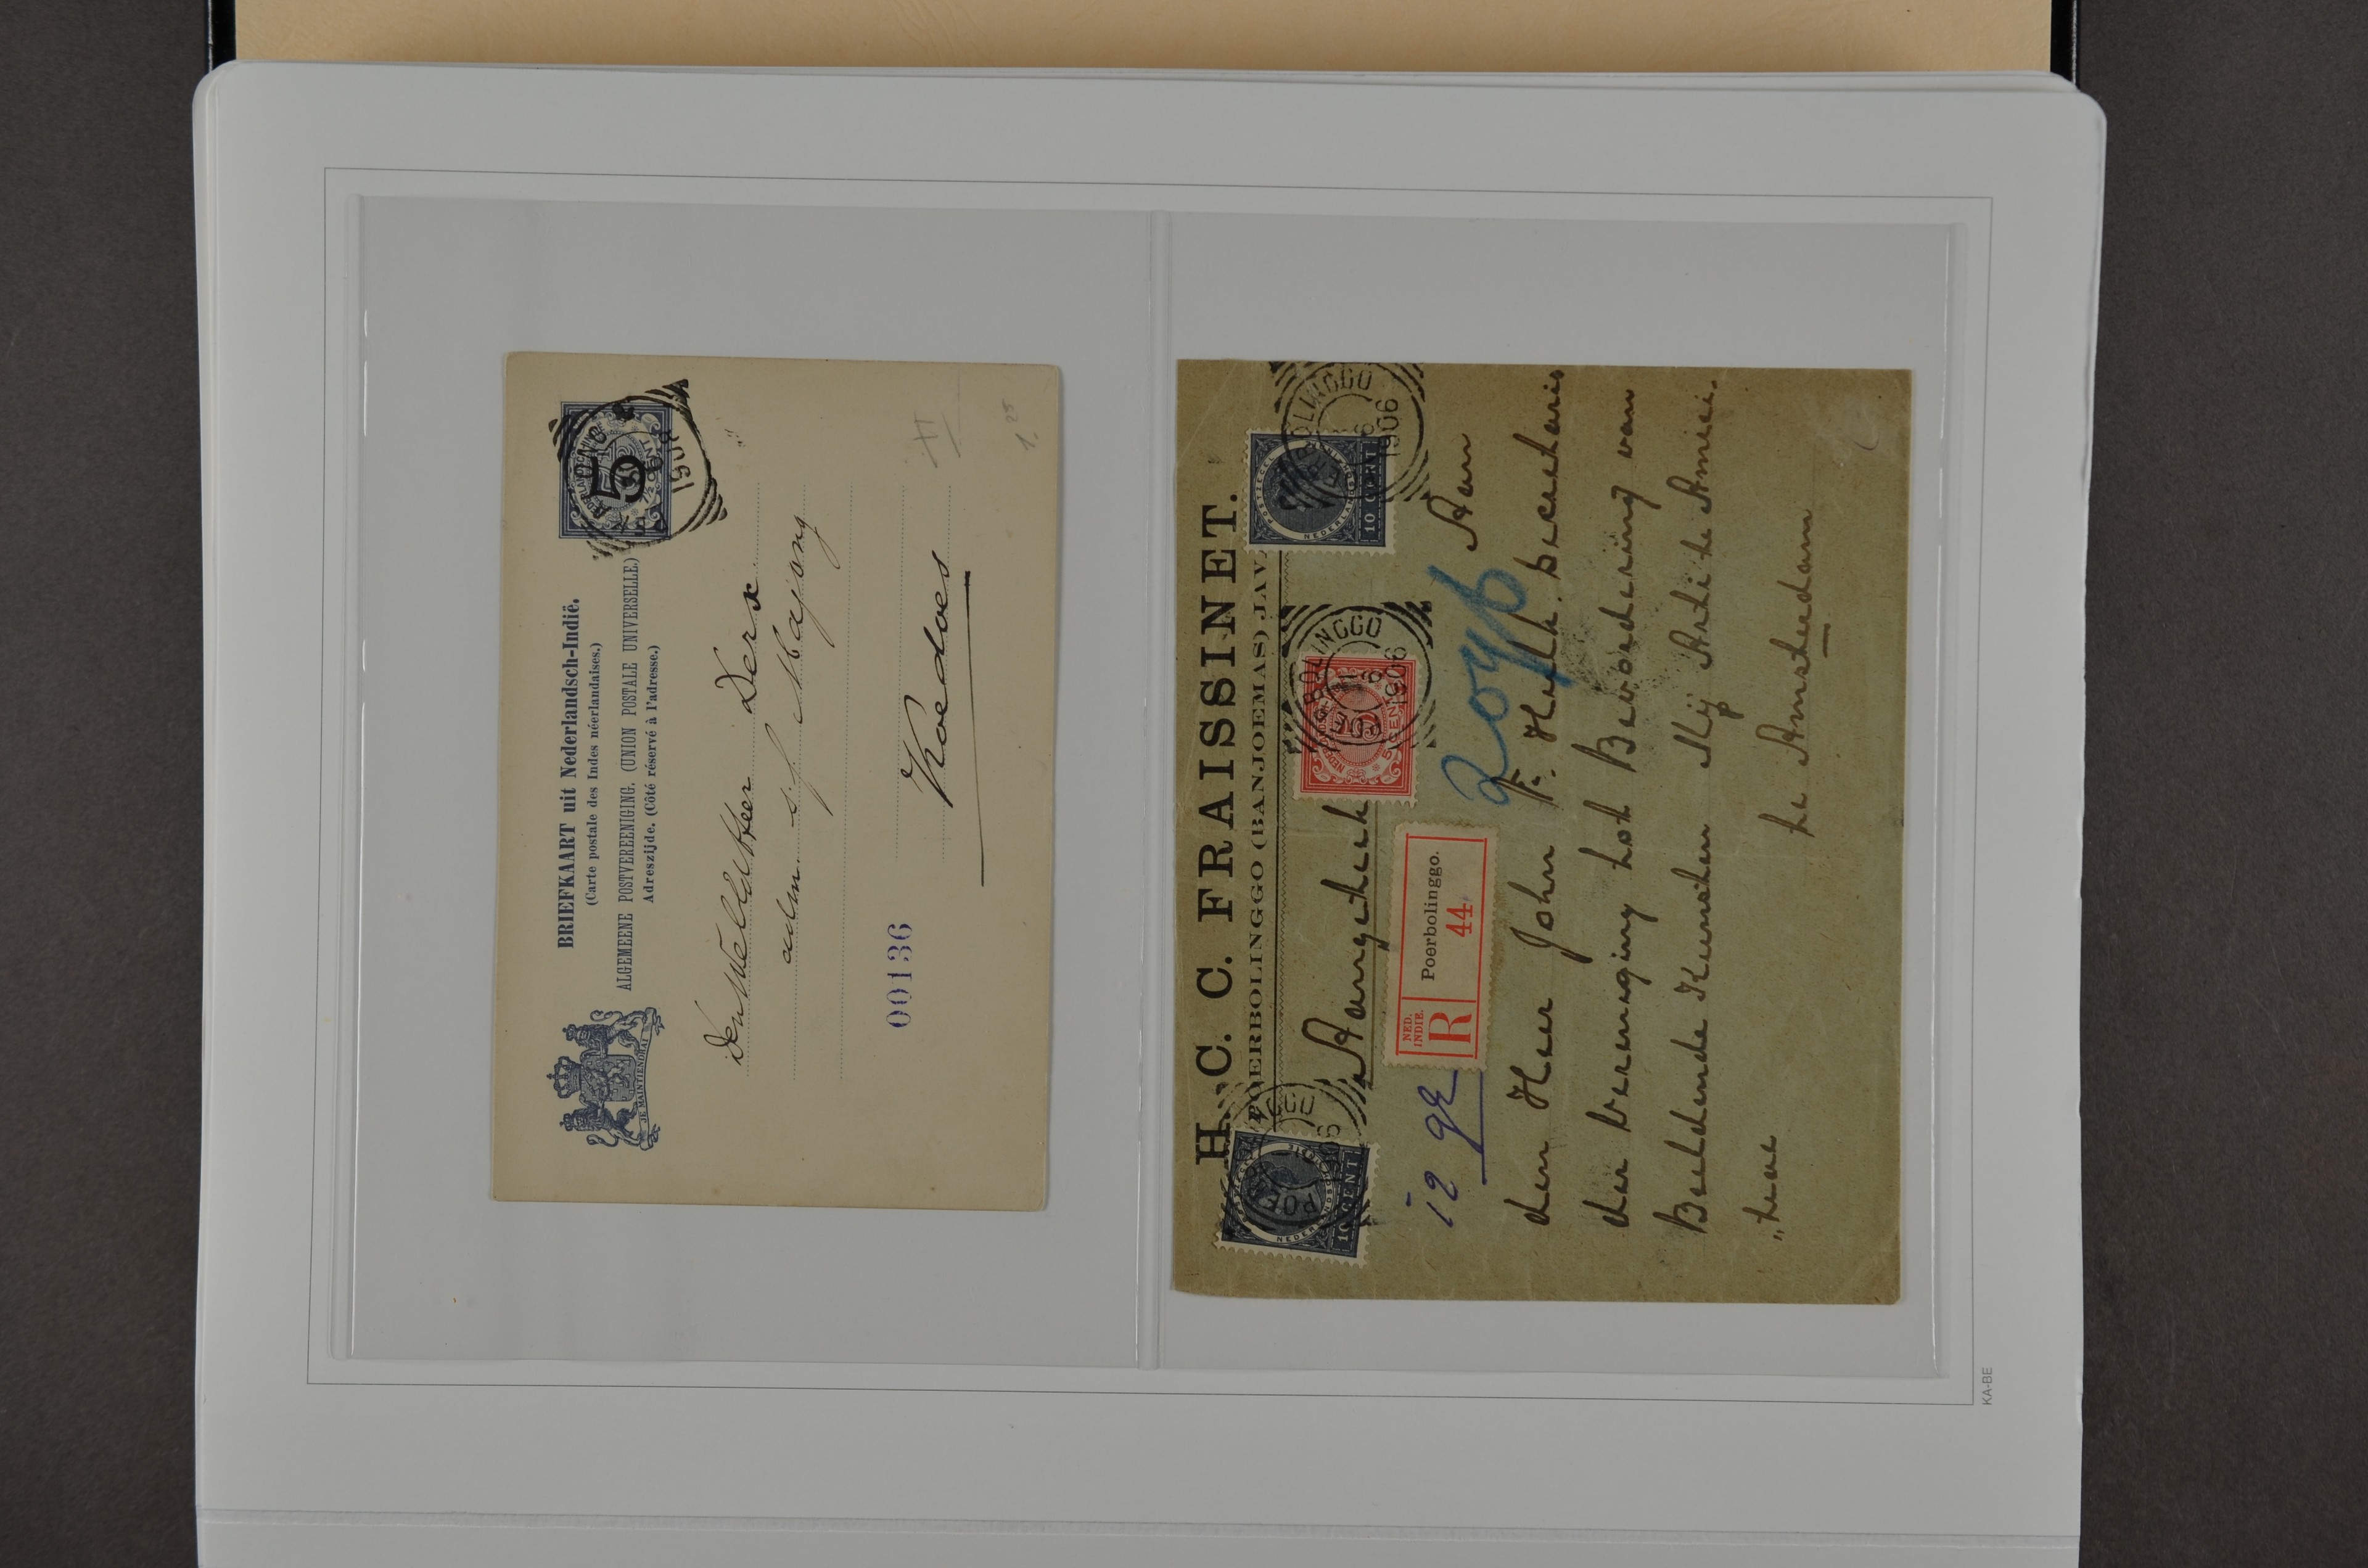 BRIEFKAART uit Nederlandsch-Indië.
(Carte postale des Indes néerlandaises.)
ALGEMEENE POSTVEREENIGING. (UNION POSTALE UNIVERSELLE)
Adreszijde. (Côté réservé à l'adresse.)
JE MAINTIENDRAI
5
1901
Den Weled. Heer Derx
adm. s. f. Majong
Koedoes
00136
1.25
H. C. C. FRAISSINET.
POERBOLINGGO (BANJOEMAS) JAV
10 CENT
5 CENT
10 CENT
POERBOLINGGO
1906
Aangeteek
NED. INDIE.
R
Poerbolinggo.
44
12 gr
Aan
den Heer John F. Hulk. secretaris
der vereeniging tot Bevordering van
Beeldende Kunsten Mij Arti et Amici.
te Amsterdam
KA-BE